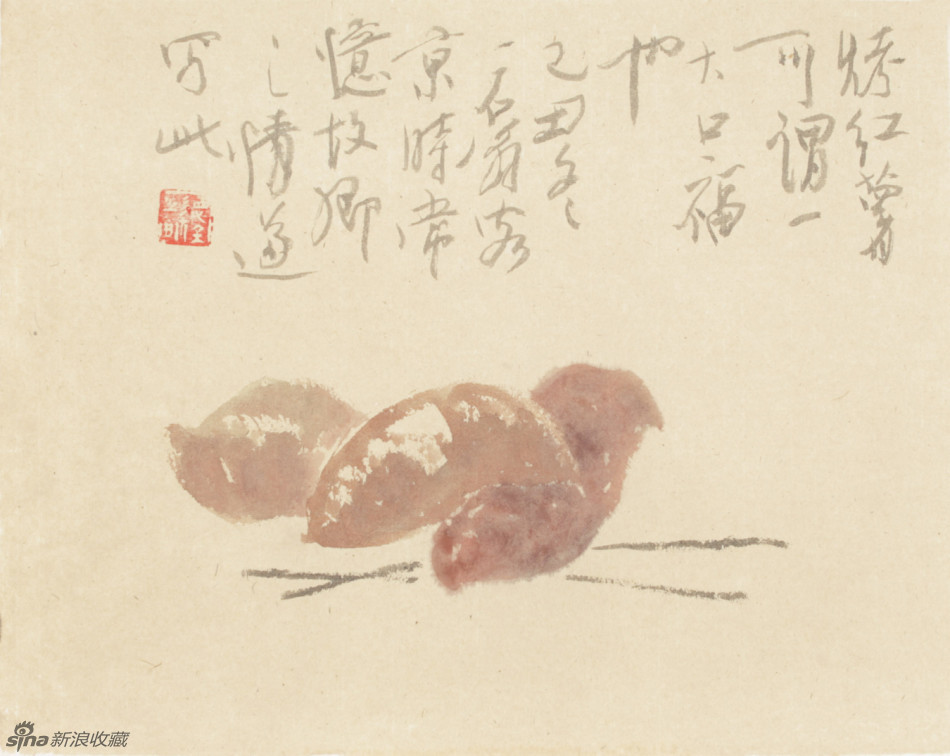 烤红薯
可謂一
大口福
也
己丑冬
一石翁客
京時常
憶故鄉
之情遂
写此
sina新浪收藏